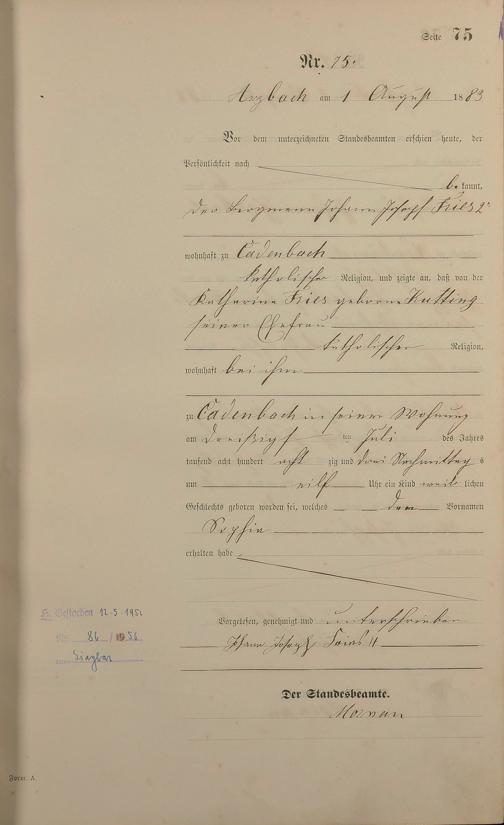 Seite 75
Nr. 75.
Arzbach am 1 August 1883
Vor dem unterzeichneten Standesbeamten erschien heute, der
Persönlichkeit nach
be kannt,
der Bergmann Johann Joseph Fries 2r
wohnhaft zu Cadenbach
katholischer Religion, und zeigte an, daß von der
Katharina Fries geborne Kutting
seiner Ehefrau
katholischer Religion,
wohnhaft bei ihm
zu Cadenbach in seiner Wohnung
am dreißigst en Juli des Jahres
tausend acht hundert acht zig und drei Nachmittag s
um eilf Uhr ein Kind weib lichen
Geschlechts geboren worden sei, welches den Vornamen
Sophia
erhalten habe
Vorgelesen, genehmigt und unterschrieben
Johann Joseph Fries II
H. Gestorben 12.5.195
Nr. 86 /1956
Der Standesbeamte.
Form. A.